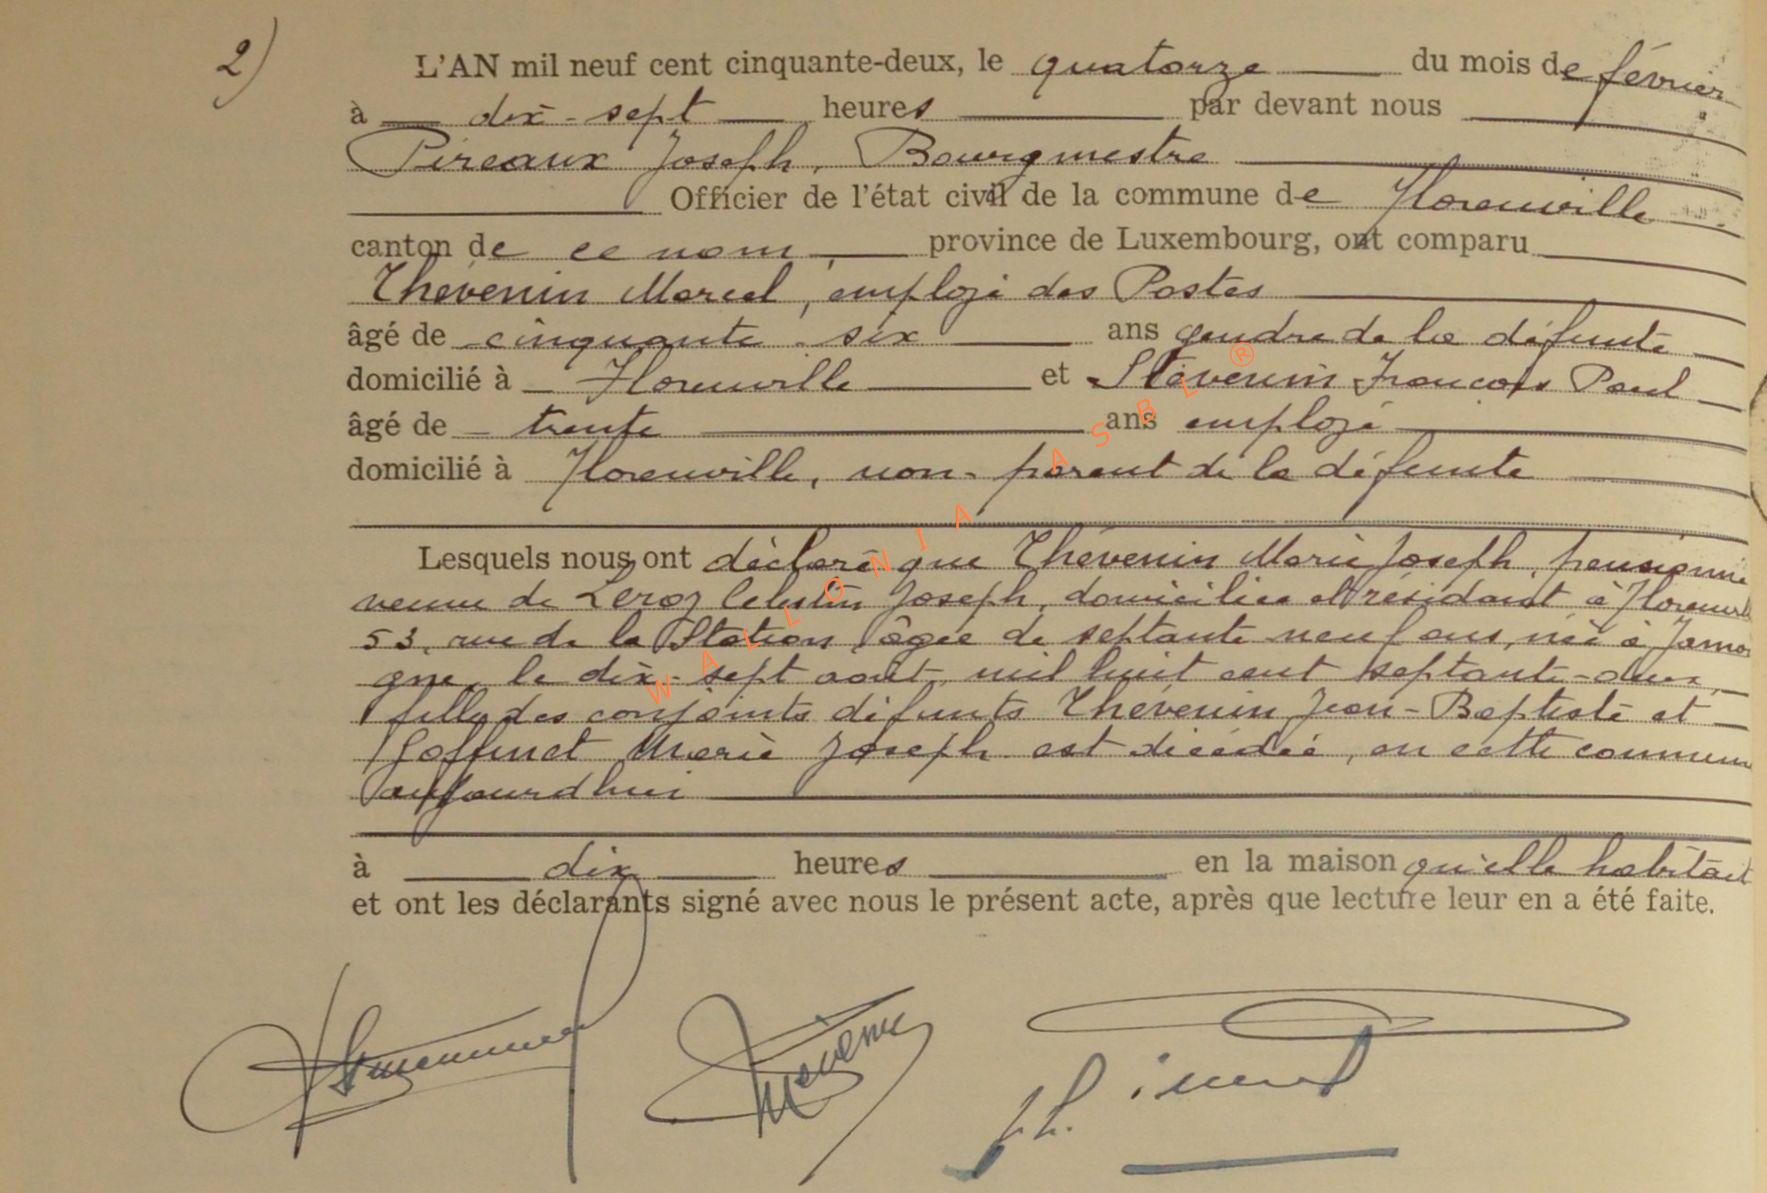 2)
L'AN mil neuf cent cinquante-deux, le quatorze du mois de février
à dix-sept heures par devant nous
Pireaux Joseph, Bourgmestre
Officier de l'état civil de la commune de Florenville
canton de ce nom, province de Luxembourg, ont comparu
Thévenin Marcel, employé des Postes
âgé de cinquante-six ans gendre de la défunte
domicilié à Florenville et Stévenin François Paul
âgé de trente ans employé
domicilié à Florenville, non-parent de la défunte
Lesquels nous ont déclaré que Thévenin Marie Joseph, pensionnée
veuve de Leroy Célestin Joseph, domiciliée et résidant à Florenville
53, rue de la Station, âgée de septante neuf ans, née à Jamoi
gne, le dix-sept août mil huit cent septante-deux,
fille des conjoints défunts Thévenin Jean-Baptiste et
Goffinet Marie Joseph est décédée, en cette commune
aujourd'hui
à dix heures en la maison qu'elle habitait
et ont les déclarants signé avec nous le présent acte, après que lecture leur en a été faite.
WALLONIA ASBL ®